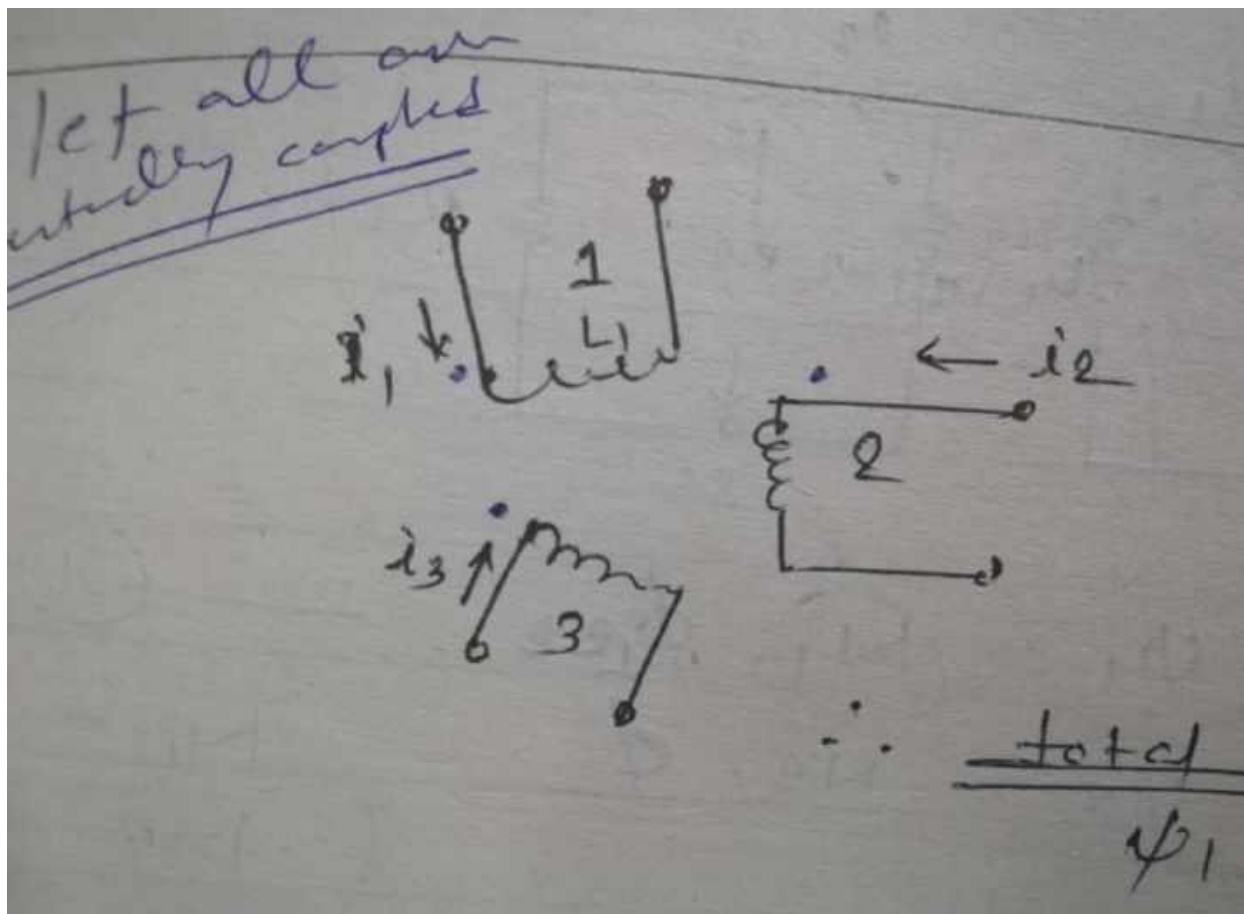 let all are
coupled
1
L1
i1
i2
2
i3
3
∴ total
ψ1